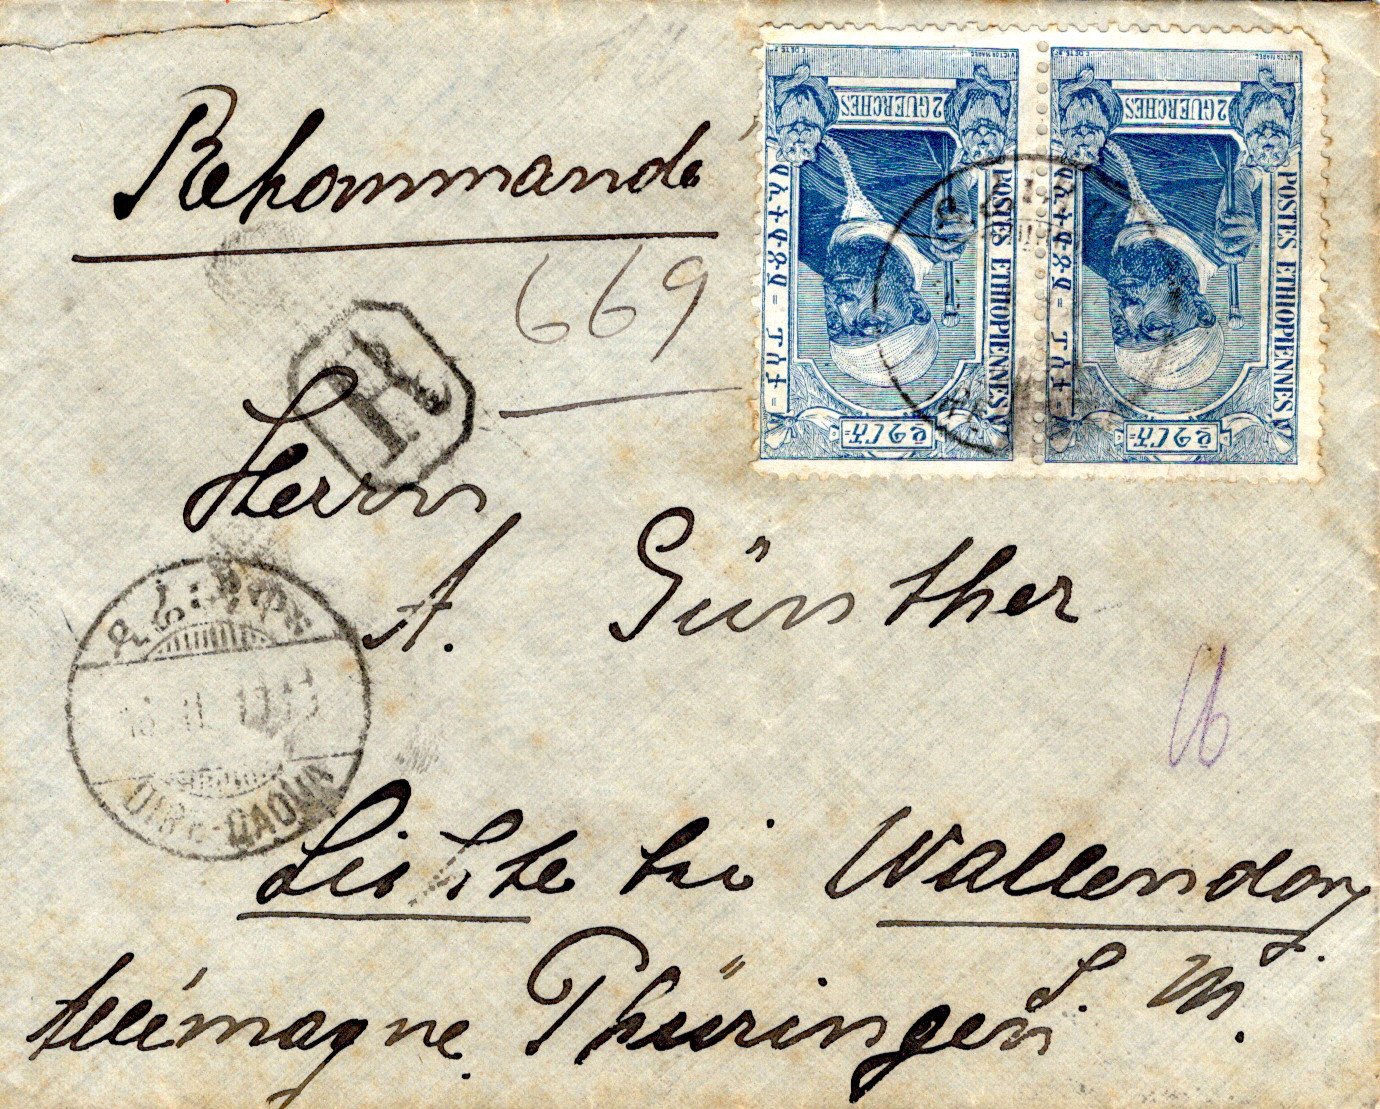 Rekommandé
669
R
Herrn
A. Günther
Lichte bei Wallendorf
S. M.
Allémagne. Thüringen
DIRE-DAOUA
2 GUERCHES
POSTES ETHIOPIENNES
2 GUERCHES
POSTES ETHIOPIENNES